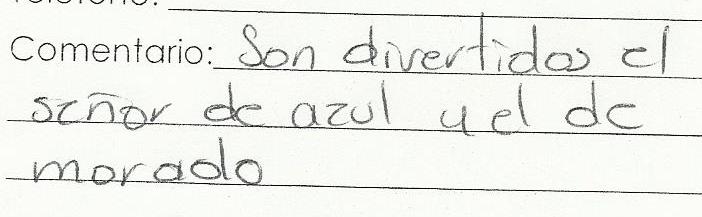 Comentario: Son divertidos el
señor de azul y el de
morado